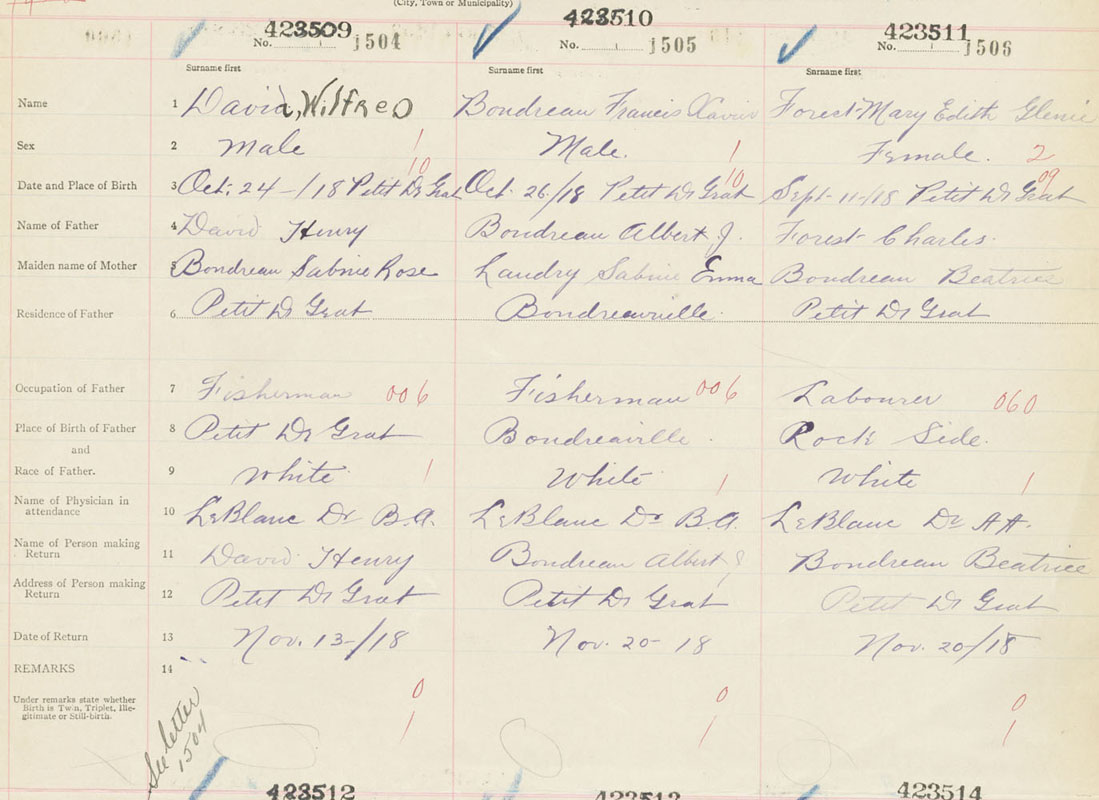 (City, Town or Municipality)
423509 423510 423511
No. 1504 No. 1505 No. 1506
Surname first Surname first Surname first
Name 1 David, Wilfred Boudreau Francis Xavier Forest Mary Edith Glenie
Sex 2 Male 1 Male. 1 Female. 2
10 10 09
Date and Place of Birth 3 Oct. 24-/18 Petit Dr Grat Oct. 26/18 Petit Dr Grat Sept-11-/18 Petit Dr Grat
Name of Father 4 David Henry Boudreau Albert J. Forest Charles.
Maiden name of Mother 5 Boudreau Sabine Rose Landry Sabine Emma Boudreau Beatrice
Residence of Father 6 Petit Dr Grat Boudreauville Petit Dr Grat
Occupation of Father 7 Fisherman 006 Fisherman 006 Labourer 060
Place of Birth of Father 8 Petit Dr Grat Boudreaville. Rock Side.
and
Race of Father. 9 White 1 White 1 White 1
Name of Physician in
attendance 10 LeBlanc Dr B.A. LeBlanc Dr B.A. LeBlanc Dr AA.
Name of Person making
Return 11 David Henry Boudreau Albert J Boudreau Beatrice
Address of Person making
Return 12 Petit Dr Grat Petit Dr Grat Petit Dr Grat
Date of Return 13 Nov. 13-/18 Nov. 20-18 Nov. 20/18
REMARKS 14
Under remarks state whether
Birth is Twin, Triplet, Ille-
gitimate or Still-birth.
0 0 0
1 1 1
See letter
1504
423512 423513 423514